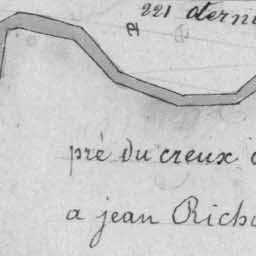 221 derni
pré du creux
a jean Rich